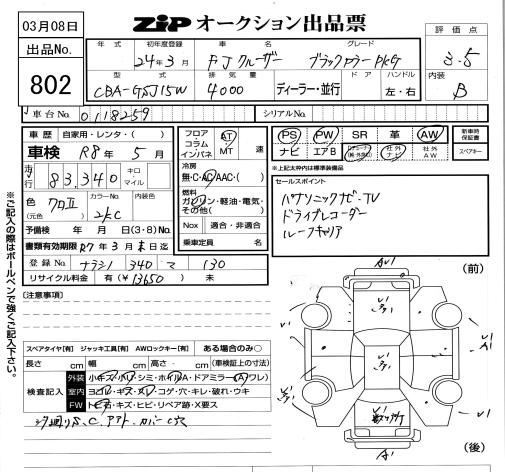 03月08日
ZIP オークション出品票
出品No.
802
評価点
3.5
内装
B
年式 初年度登録 車名 グレード
24年3月 FJクルーザー ブラックカラーPKG
型式 排気量 ドア ハンドル
CBA-GSJ15W 4000 ディーラー・並行 左・右
車台No. 0118259 シリアルNo.
車歴 自家用・レンタ・( )
車検 R8年5月
走行 83,340 キロ マイル
色 (元色) クロⅡ カラーNo. 2LC 内装色
予備検 年 月 日(3・8)No.
書類有効期限 R7年3月末日迄
登録No ナラシノ 340 マ 130
リサイクル料金 有(¥13650) 未
フロア コラム インパネ AT MT 速
冷房 無・C・AC・AAC・( )
燃料 ガソリン・軽油・電気・その他( )
Nox 適合・非適合
乗車定員 名
PS PW SR 革 AW
ナビ エアB 社外ナビ 社外AW
新車時保証書
スペアキー
*上記太枠内は標準装備品
セールスポイント
パナソニックナビ・TV
ドライブレコーダー
ルーフキャリア
[注意事項]
スペアタイヤ[有] ジャッキ工具[有] AWロックキー[有] ある場合のみ○
長さ cm 幅 cm 高さ cm (車検証上の寸法)
検査記入
外装 小キズ・小凹・シミ・ホイルA・ドアミラー(A)ワレ)
室内 ヨゴレ・キズ・スレ・コゲ・穴・キレ・破れ・ウキ
FW トビ石・キズ・ヒビ・リペア跡・X要ス
※ご記入の際はボールペンで強くご記入下さい。
(前)
(後)
A1